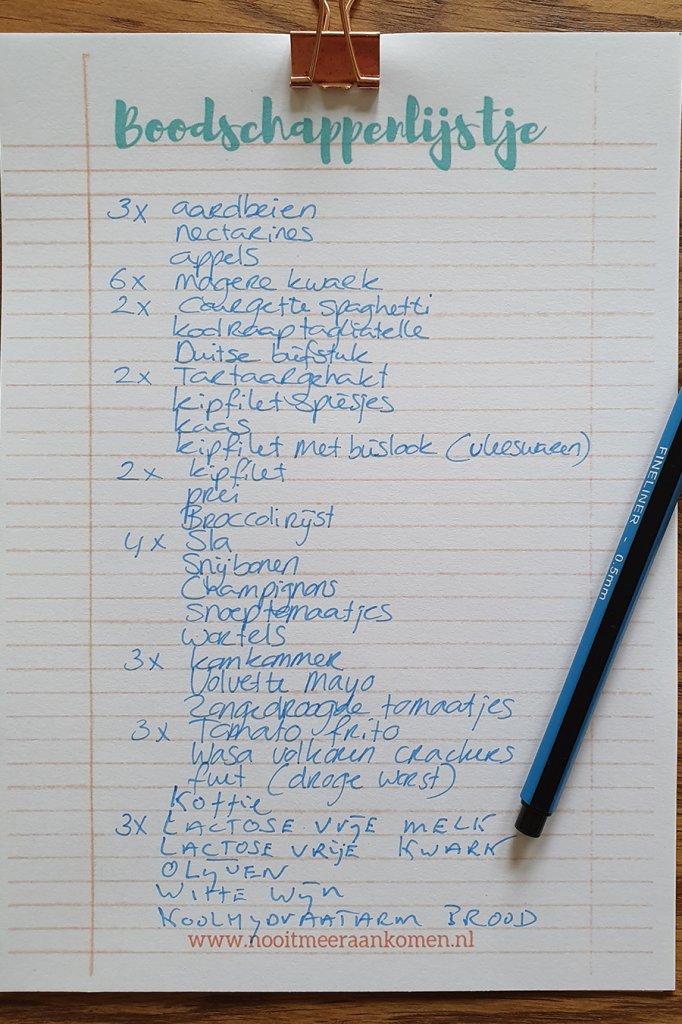 Boodschappenlijstje
3x aardbeien
nectarines
appels
6x magere kwark
2x Courgette spaghetti
koolraap tagliatelle
Duitse biefstuk
2x Tartaargehakt
kipfilet spiesjes
kaas
kipfilet met bieslook (vleeswaren)
2x kipfilet
prei
Broccolirijst
4x Sla
Snijbonen
Champignons
snoeptomaatjes
wortels
3x komkommer
Volvette Mayo
Zongedroogde tomaatjes
3x Tomato frito
Wasa volkoren crackers
fuet (droge worst)
Koffie
3x LACTOSE VRIJE MELK
LACTOSE VRIJE KWARK
OLIJVEN
WITTE WIJN
KOOLHYDRAATARM BROOD
www.nooitmeeraankomen.nl
FINELINER - 0.5mm